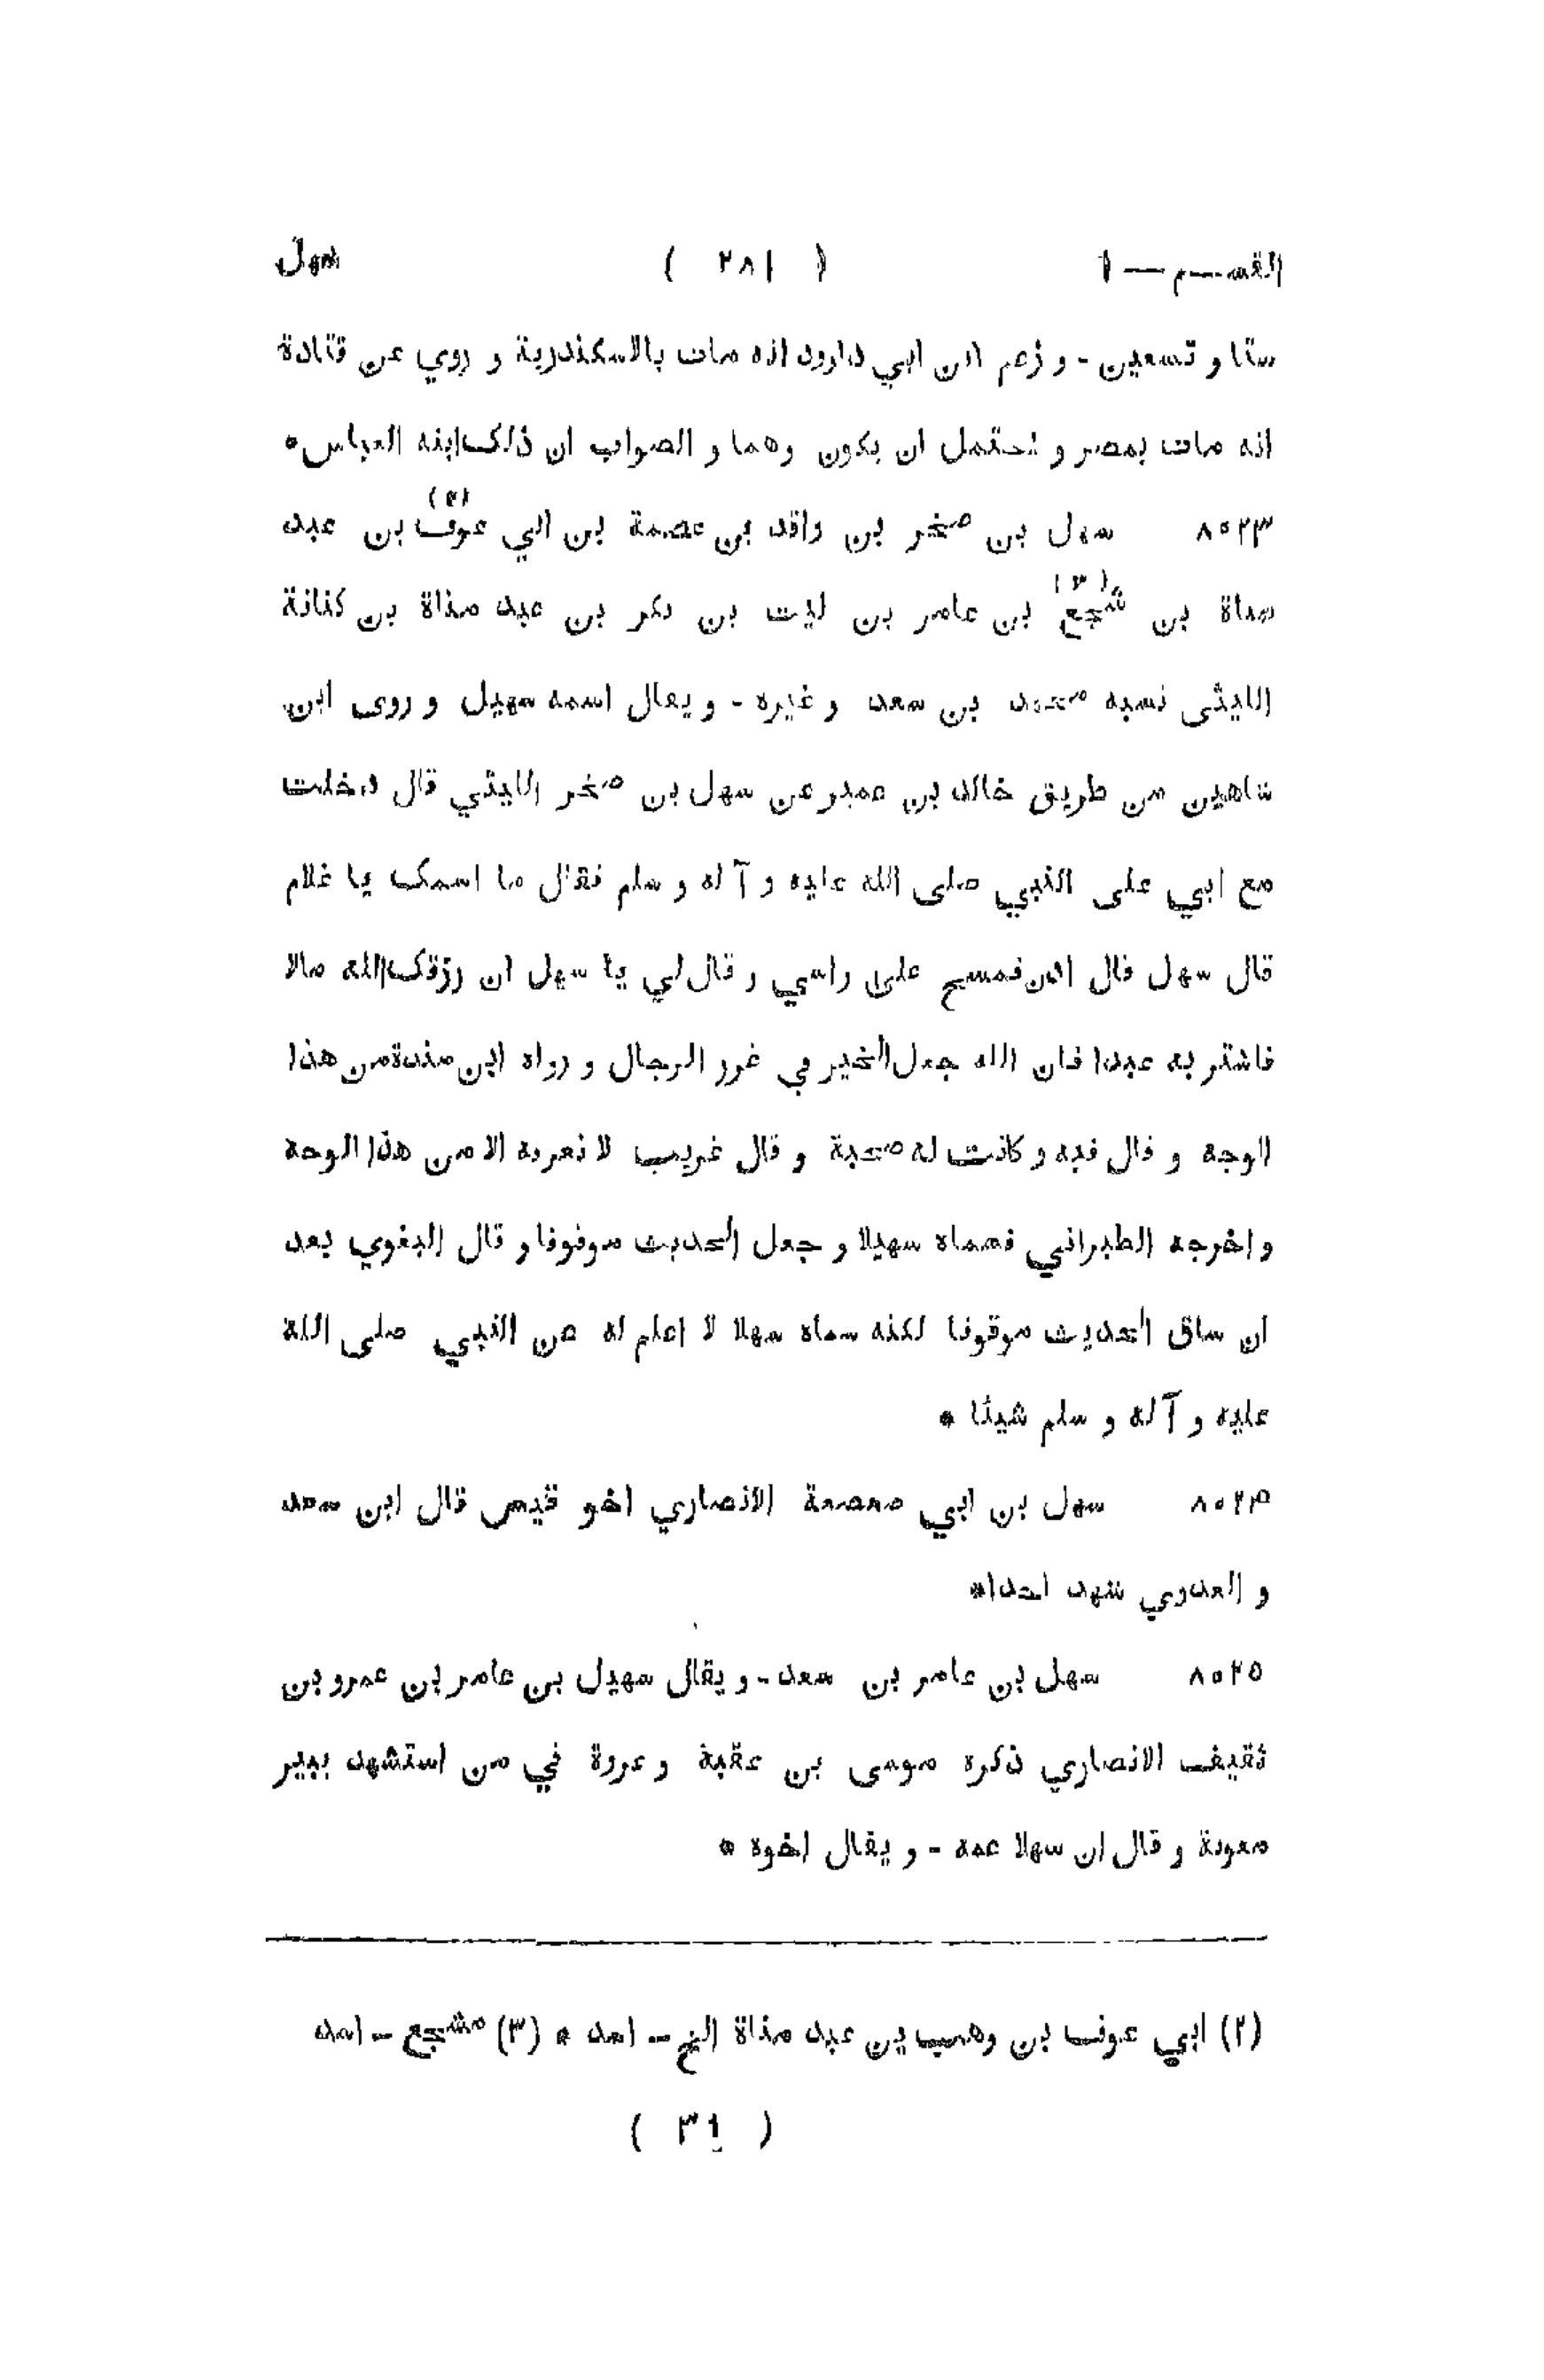 القسم — ١ ( ٢٨١ ) سهل
ستا و تسعين - و زعم ابن ابي داوود انه مات بالاسكندرية و روي عن قتادة
انه مات بمصر و يحتمل ان يكون وهما و الصواب ان ذلك ابنه العباس *
٨٥٢٣ سهل بن صخر بن واقد بن عصمة بن ابي عوف (٢) بن عبد
مناة بن شجع (٣) بن عامر بن ليث بن بكر بن عبد مناة بن كنانة
الليثي نسبه محمد بن سعد و غيره - و يقال اسمه سهيل و روى ابن
شاهين من طريق خالد بن عمير عن سهل بن صخر الليثي قال دخلت
مع ابي على النبي صلى الله عليه و آله و سلم فقال ما اسمك يا غلام
قال سهل قال ادن فمسح على راسي و قال لي يا سهل ان رزقك الله مالا
فاشتر به عبدا فان الله جعل الخير في غرر الرجال و رواه ابن مندة من هذا
الوجه و قال فيه و كانت له صحبة و قال غريب لا نعرفه الا من هذا الوجه
و اخرجه الطبراني فسماه سهيلا و جعل الحديث موقوفا و قال البغوي بعد
ان ساق الحديث موقوفا لكنه سماه سهلا لا اعلم له عن النبي صلى الله
عليه و آله و سلم شيئا *
٨٥٢٤ سهل بن ابي صعصعة الانصاري اخو قيس قال ابن سعد
و العدوي شهد احدا *
٨٥٢٥ سهل بن عامر بن سعد - و يقال سهيل بن عامر بن عمرو بن
ثقيف الانصاري ذكره موسى بن عقبة و عروة في من استشهد ببير
معونة و قال ان سهلا عمه - و يقال اخوه *
(٢) ابي عوف بن وهب بن عبد مناة الخ - اسد * (٣) مشجع - اسد
( ٣١ )